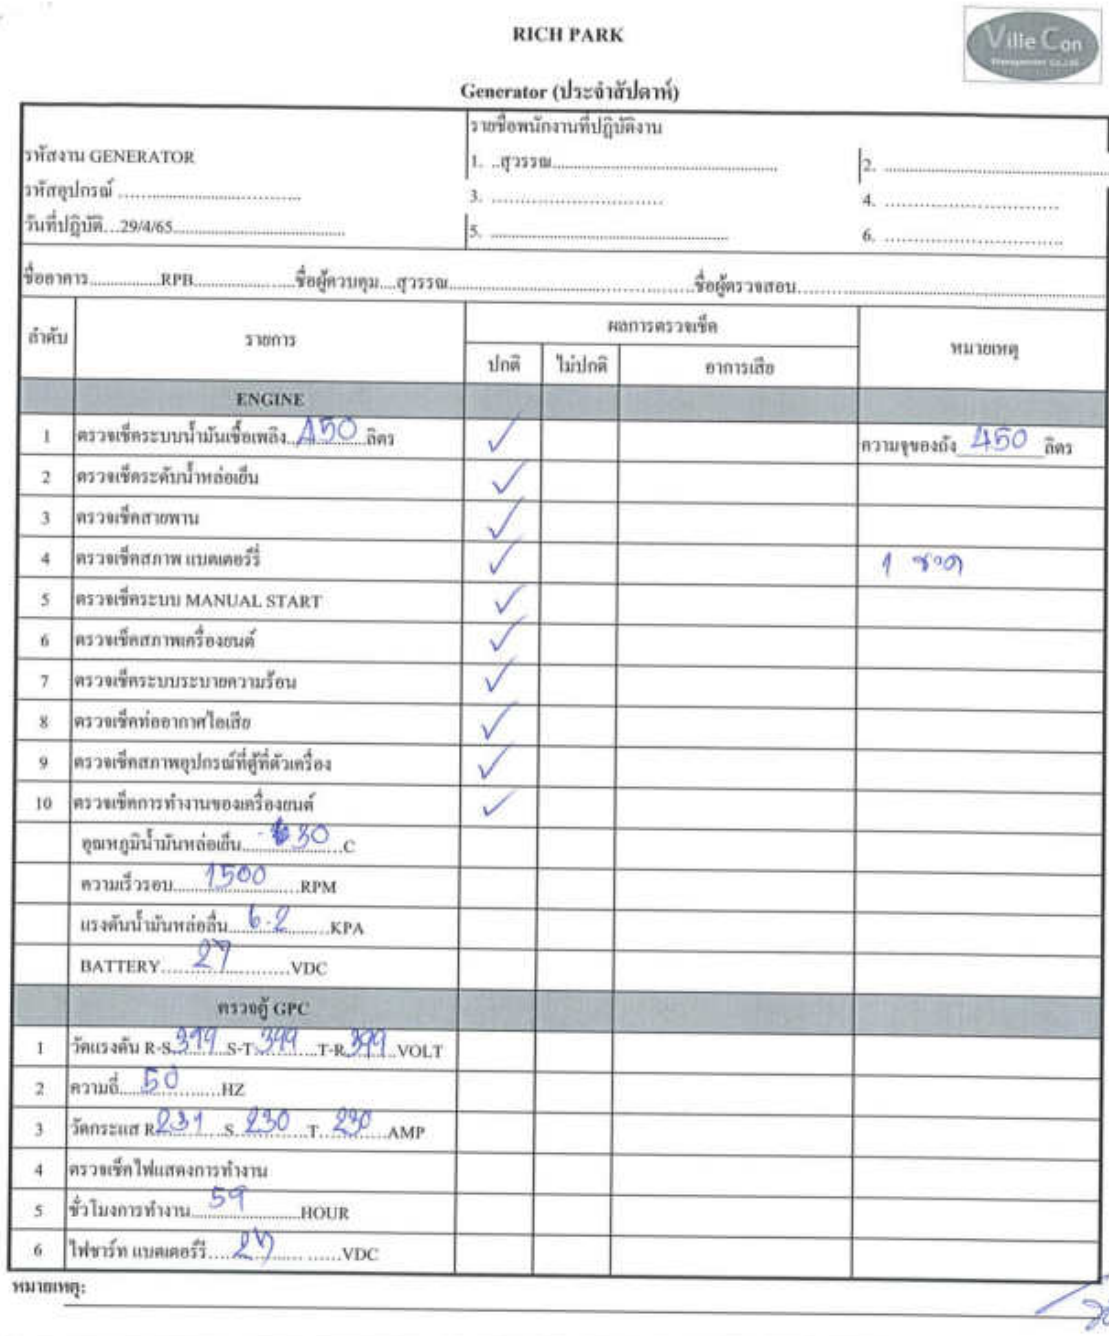 RICH PARK
Ville Con
Generator (ประจำสัปดาห์)
รายชื่อพนักงานที่ปฏิบัติงาน
รหัสงาน GENERATOR
1. ..สุวรรณ.......... 2. ..........
รหัสอุปกรณ์ .......... 3. .......... 4. ..........
วันที่ปฏิบัติ...29/4/65.......... 5. .......... 6. ..........
ชื่ออาคาร..........RPB..........ชื่อผู้ควบคุม....สุวรรณ..........ชื่อผู้ตรวจสอบ..........
ลำดับ รายการ ผลการตรวจเช็ค หมายเหตุ
ปกติ ไม่ปกติ อาการเสีย
ENGINE
1 ตรวจเช็คระบบน้ำมันเชื้อเพลิง..450..ลิตร ✓ ความจุของถัง 450 ลิตร
2 ตรวจเช็คระดับน้ำหล่อเย็น ✓
3 ตรวจเช็คสายพาน ✓
4 ตรวจเช็คสภาพ แบตเตอร์รี่ ✓ 1
5 ตรวจเช็คระบบ MANUAL START ✓
6 ตรวจเช็คสภาพเครื่องยนต์ ✓
7 ตรวจเช็คระบบระบายความร้อน ✓
8 ตรวจเช็คท่ออากาศไอเสีย ✓
9 ตรวจเช็คสภาพอุปกรณ์ที่ตู้ที่ตัวเครื่อง ✓
10 ตรวจเช็คการทำงานของเครื่องยนต์ ✓
อุณหภูมิน้ำมันหล่อเย็น....30....C
ความเร็วรอบ....1500....RPM
แรงดันน้ำมันหล่อลื่น....6.2....KPA
BATTERY....27....VDC
ตรวจตู้ GPC
1 วัดแรงดัน R-S..399..S-T..399..T-R..399..VOLT
2 ความถี่....50....HZ
3 วัดกระแส R..231..S..230..T..230..AMP
4 ตรวจเช็คไฟแสดงการทำงาน
5 ชั่วโมงการทำงาน....59....HOUR
6 ไฟชาร์ท แบตเตอร์รี่....27....VDC
หมายเหตุ: